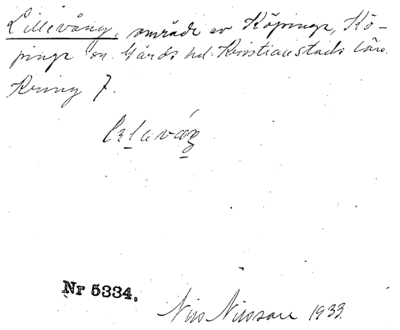 Lillevång, område av Köpinge, Kö-
pinge sn. Gärds hd. Kristianstads län.
Kring 7.
Nr 5334.
Nils Nilsson 1933.